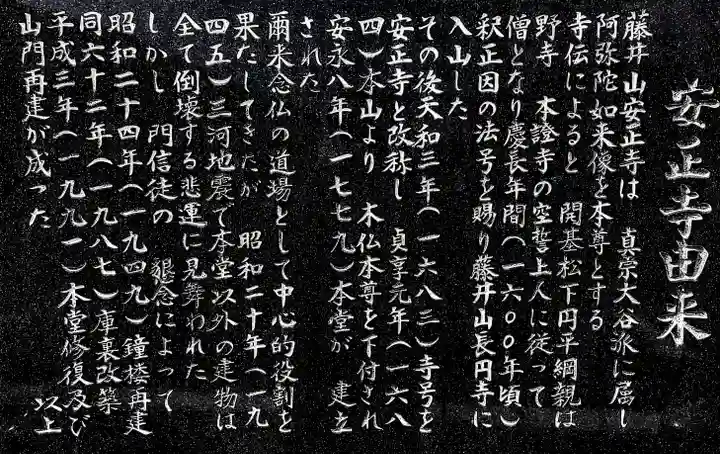 安正寺由来
藤井山安正寺は　真宗大谷派に属し
阿弥陀如来像を本尊とする
寺伝によると　開基松下円平綱親は
野寺　本證寺の空誓上人に従って
僧となり慶長年間(一六〇〇年頃)
釈正因の法号を賜り藤井山長円寺に
入山した
その後天和三年(一六八三)寺号を
安正寺と改称し　貞享元年(一六八
四)本山より　木仏本尊を下付され
安永八年(一七七九)本堂が　建立
された
爾来念仏の道場として中心的役割を
果たしてきたが　昭和二十年(一九
四五)三河地震で本堂以外の建物は
全て倒壊する悲運に見舞われた
しかし　門信徒の　懇念によって
昭和二十四年(一九四九)鐘楼再建
同六十二年(一九八七)庫裏改築
平成三年(一九九一)本堂修復及び
山門再建が成った　　　　　以上